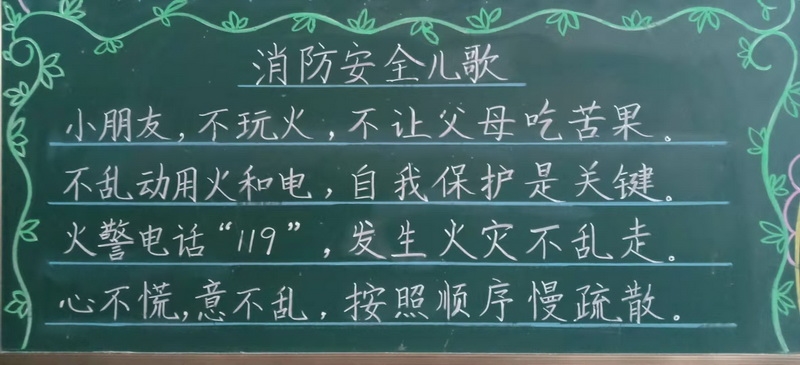 消防安全儿歌
小朋友,不玩火,不让父母吃苦果。
不乱动用火和电,自我保护是关键。
火警电话“119”,发生火灾不乱走。
心不慌,意不乱,按照顺序慢疏散。